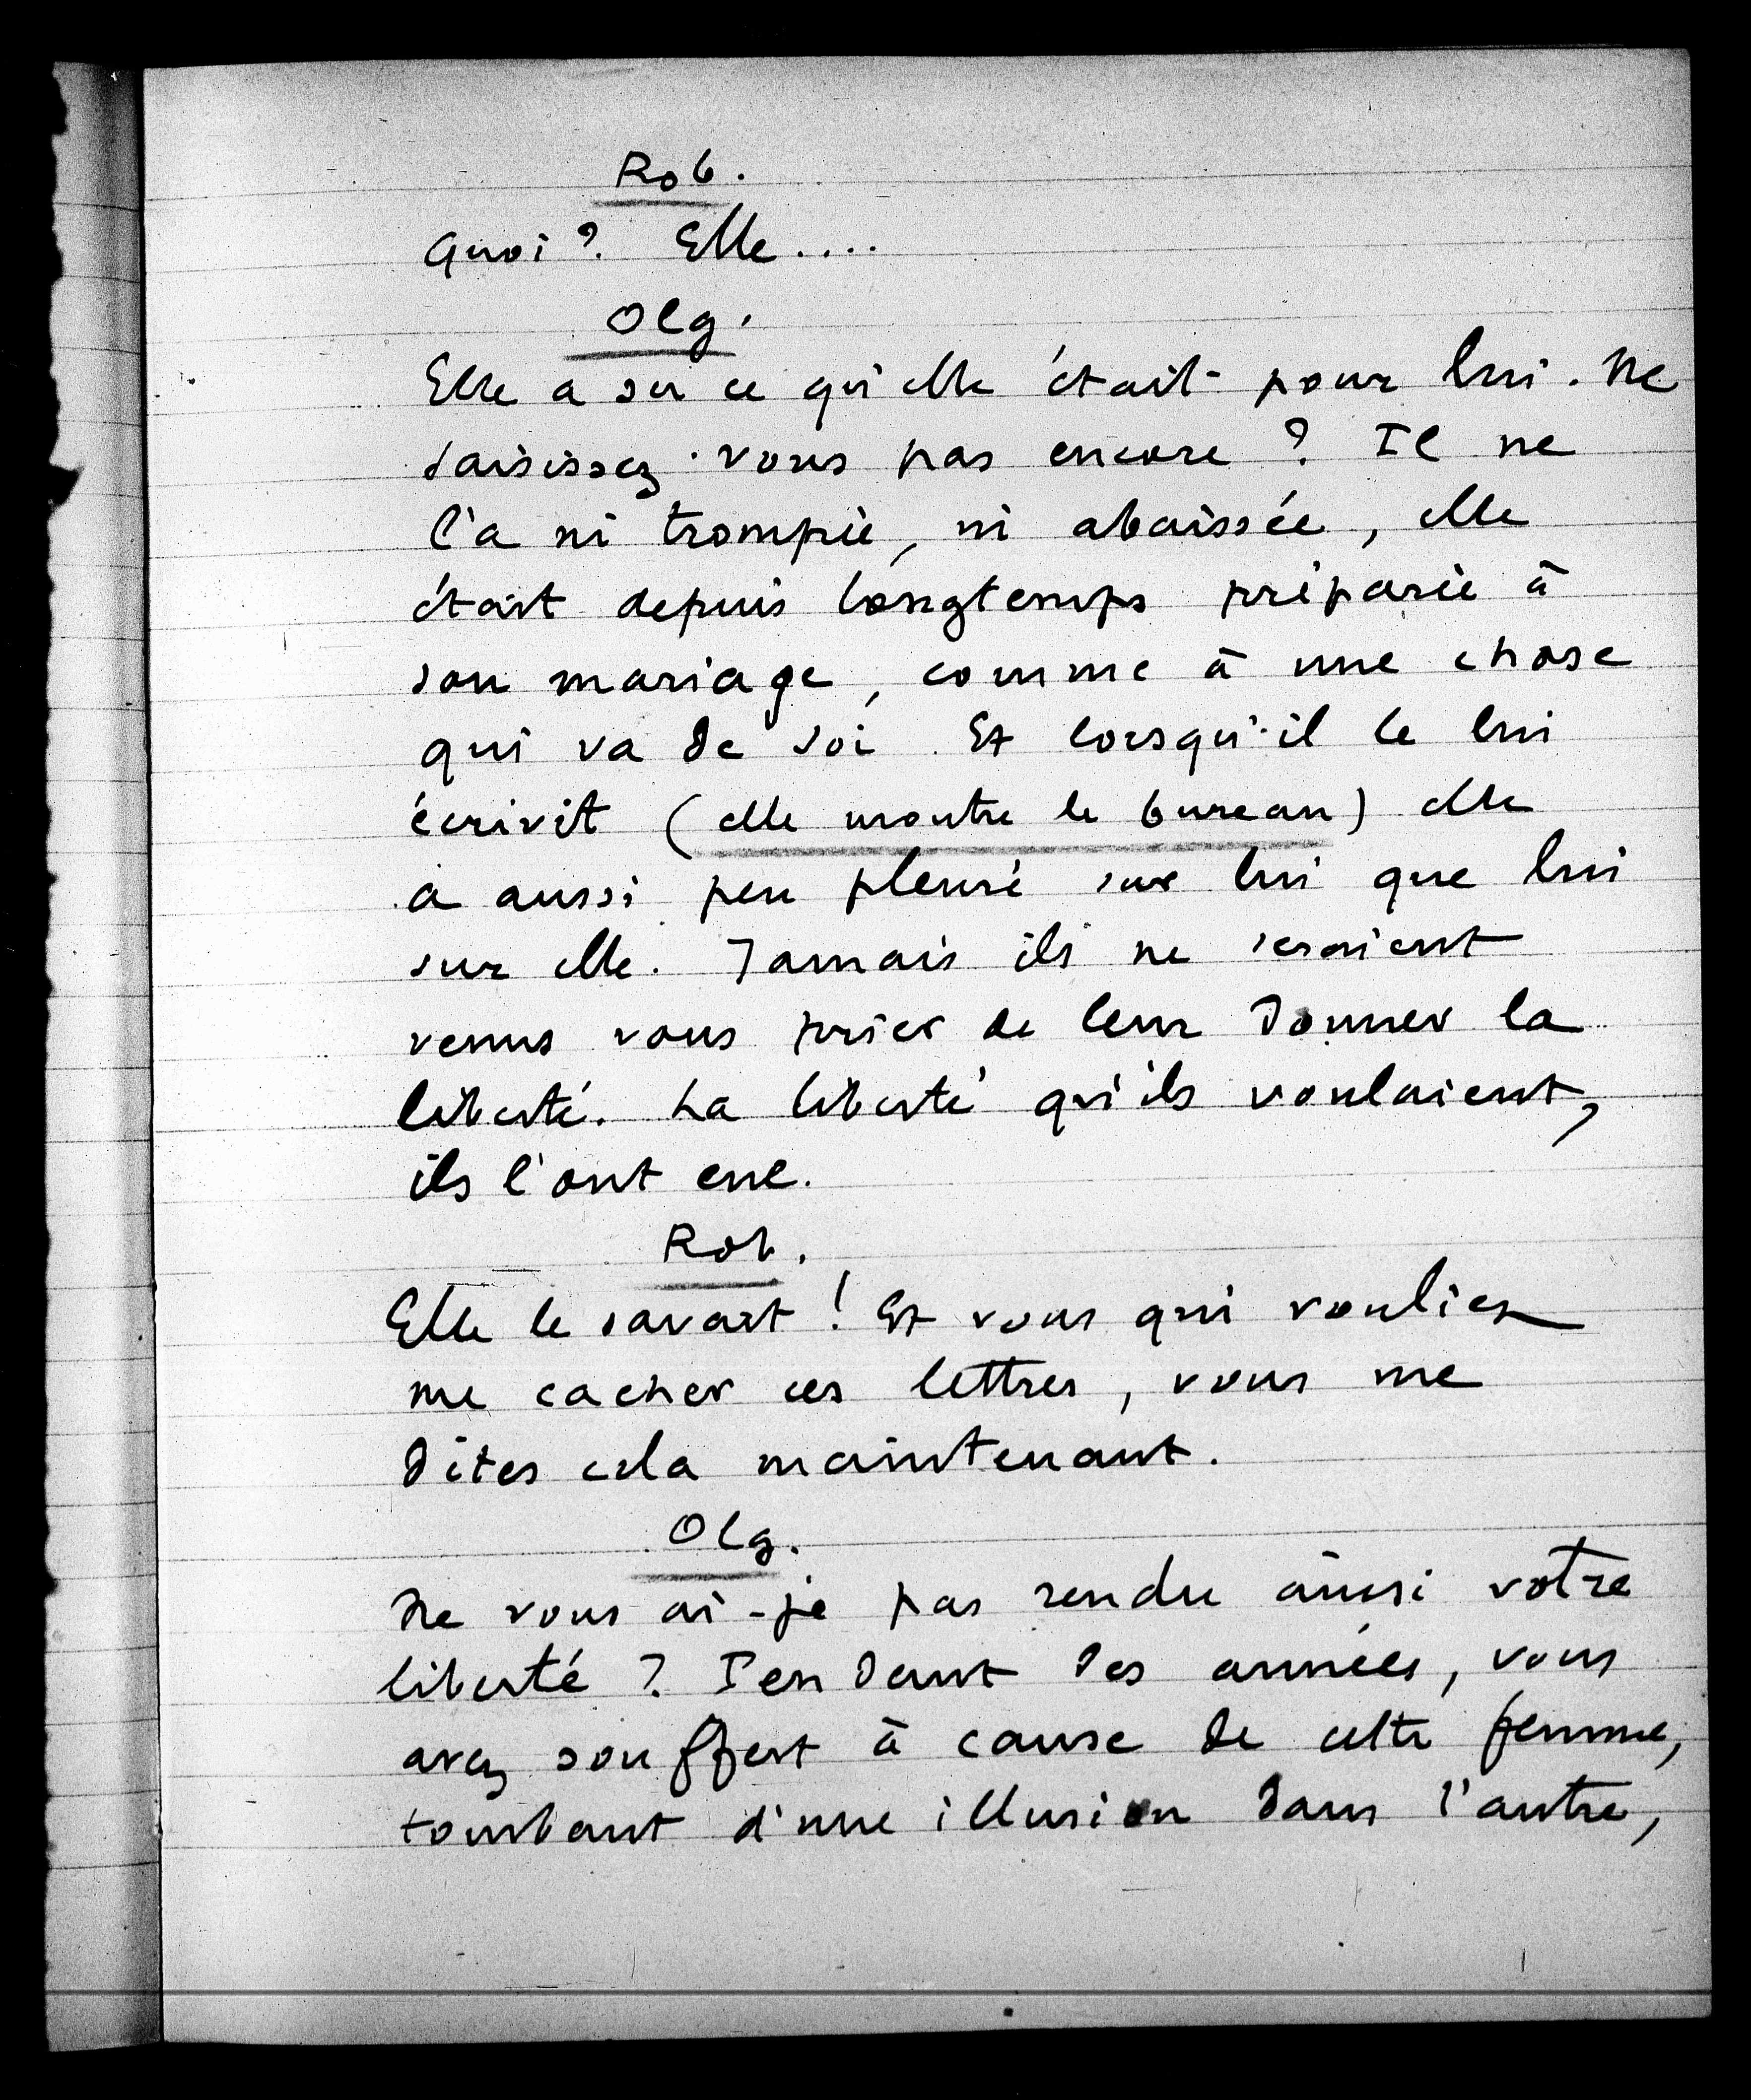 Rob.
Quoi ? Elle ....
Olg.
Elle a su ce qu'elle était pour lui. Ne
saisissez-vous pas encore ? Il ne
l'a ni trompée, ni abaissée, elle
était depuis longtemps préparée à
son mariage, comme à une chose
qui va de soi. Et lorsqu'il le lui
écrivit (elle montre le bureau) elle
a aussi peu pleuré sur lui que lui
sur elle. Jamais ils ne seraient
venus vous prier de leur donner la
liberté. La liberté qu'ils voulaient,
ils l'ont eue.
Rob.
Elle le savait ! Et vous qui vouliez
me cacher ces lettres, vous me
dites cela maintenant.
Olg.
Ne vous ai-je pas rendu ainsi votre
liberté ? Pendant des années, vous
avez souffert à cause de cette femme,
tombant d'une illusion dans l'autre,